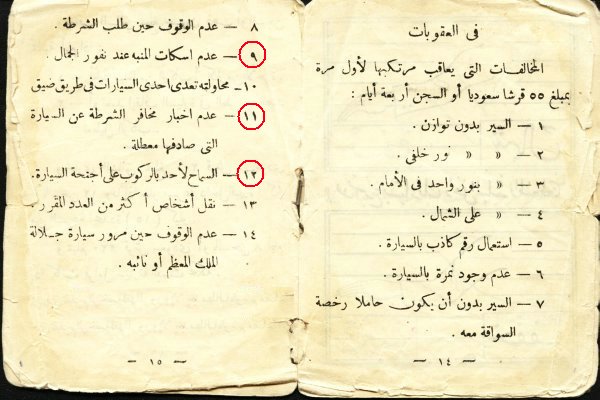 فى العقوبات
المخالفات التى يعاقب مرتكبها لأول مرة
بمبلغ ٥٥ قرشا سعوديا أو السجن أربعة أيام :
١ — السير بدون توازن .
٢ — » » نور خلفى .
٣ — » بنور واحد فى الأمام .
٤ — » على الشمال .
٥ — استعمال رقم كاذب بالسيارة .
٦ — عدم وجود نمرة بالسيارة .
٧ — السير بدون أن يكون حاملا رخصة
السواقة معه .
— ١٤ —
٨ — عدم الوقوف حين طلب الشرطة .
٩ — عدم اسكات المنبه عند نفور الجمال .
١٠ — محاولته تعدى احدى السيارات فى طريق ضيق
١١ — عدم اخبار مخافر الشرطة عن السيارة
التى صادفها معطلة .
١٢ — السماح لأحد بالركوب على أجنحة السيارة .
١٣ — نقل أشخاص أكثر من العدد المقرر .
١٤ — عدم الوقوف حين مرور سيارة جلالة
الملك المعظم أو نائبه .
— ١٥ —